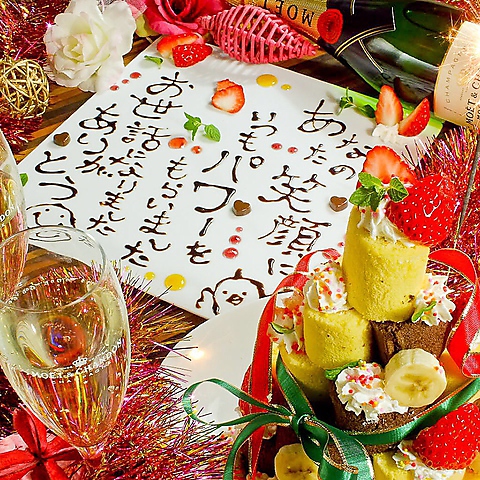 あなたの笑顔に
いつもパワーを
もらいました
お世話になりました
ありが
とう
MOËT & CHANDON
CHAMPAGNE
MOËT & CHANDON
MOËT